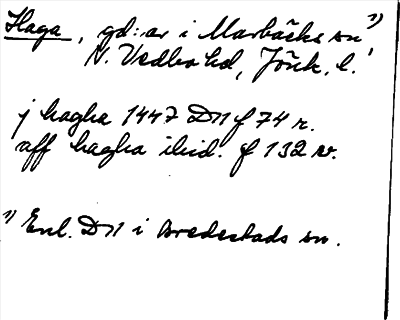 Haga, gd:ar i Marbäcks sn 1)
N. Vedbo hd, Jönk. l.
j hagha 1447 DN f 74 r.
aff hagha ibid. f 132 v.
1) Enl. DN i Bredestads sn.